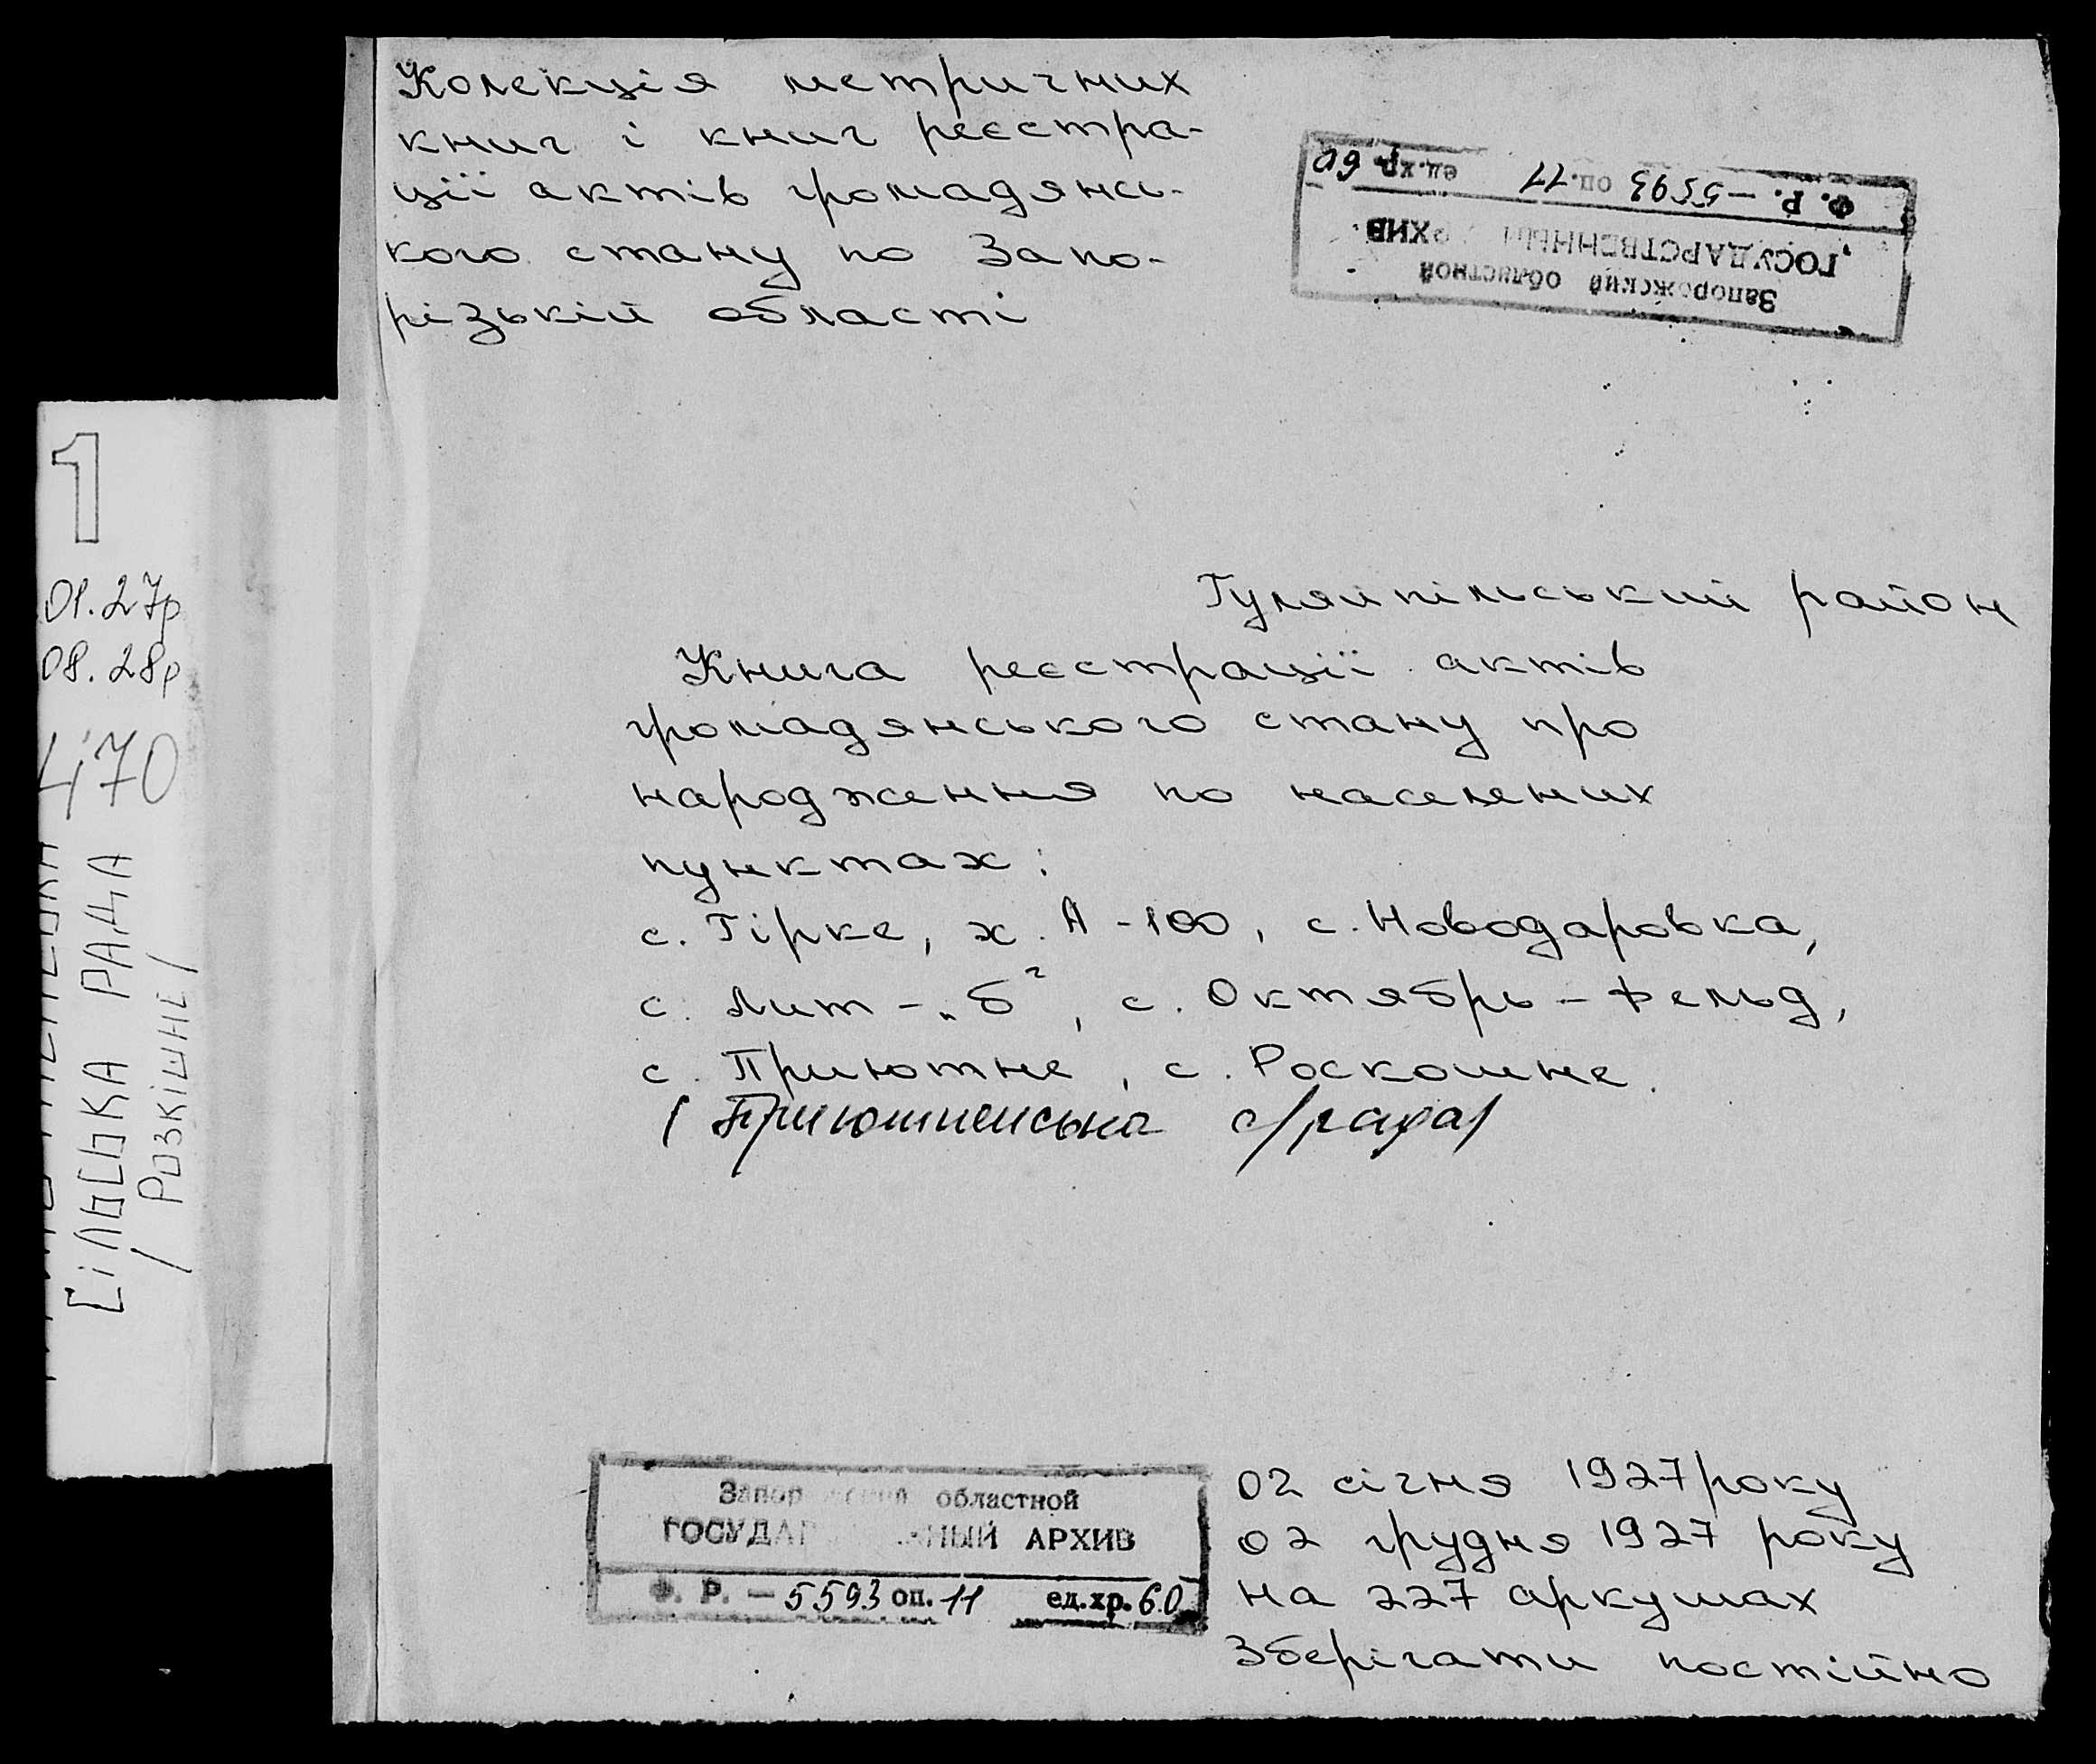 Колекція метричних
книг і книг реєстра-
ції актів громадянсь-
кого стану по Запо-
різькій області
Запорожский областной
ГОСУДАРСТВЕННЫЙ АРХИВ
Ф. Р. - 5593 оп. 11 ед.хр. 60
1
01.27р
08.28р
470
СІЛЬСЬКА РАДА
/РОЗКІШНЕ/
Гуляйпільський район
Книга реєстрації актів
громадянського стану про
народження по населених
пунктах:
с. Гірке, х. А-100, с. Новодаровка,
с. Лит-„б", с. Октябрь-Фельд,
с. Приютне, с. Роскошне.
(Приютненська с/рада)
Запорожский областной
ГОСУДАРСТВЕННЫЙ АРХИВ
Ф. Р. - 5593 оп. 11 ед.хр. 60
02 січня 1927 року
02 грудня 1927 року
на 227 аркушах
Зберігати постійно